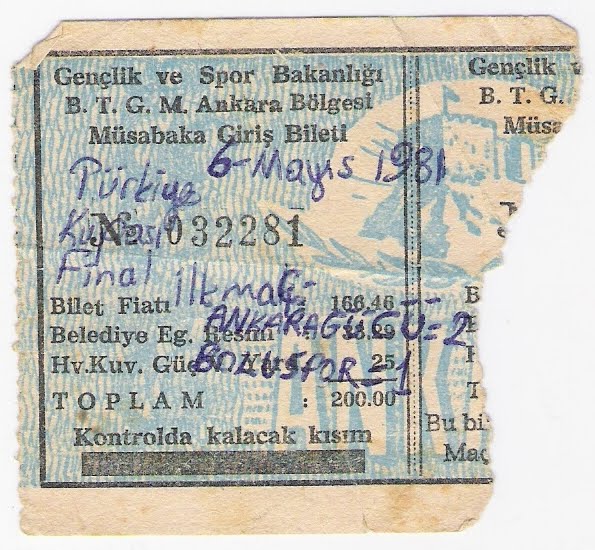 Gençlik ve Spor Bakanlığı
B. T. G. M. Ankara Bölgesi
Müsabaka Giriş Bileti
6-Mayıs 1981
Türkiye
Kupası
Final ilk maç-
№ 032281
Bilet Fiatı : 166.46
Belediye Eg. Resmi
ANKARAGÜCÜ=2
Hv.Kuv. Güç 25
BOLUSPOR=1
TOPLAM : 200.00
Kontrolda kalacak kısım
Gençlik
B. T. G.
Müsa
Bu bi
Maç